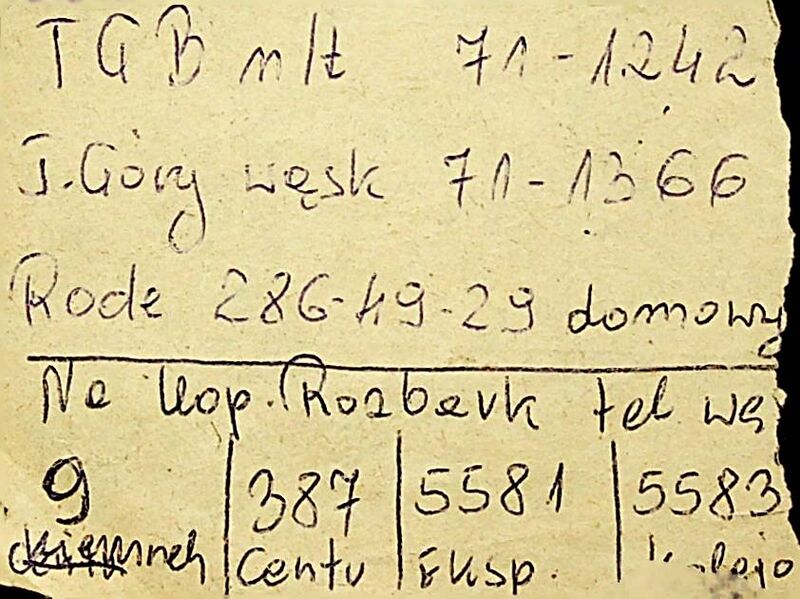 TGB n/t 71-1242
T.Góry wąsk 71-1366
Rode 286-49-29 domowy
Na kop. Rozbark tel wą
9 387 5581 5583
Centr Eksp.